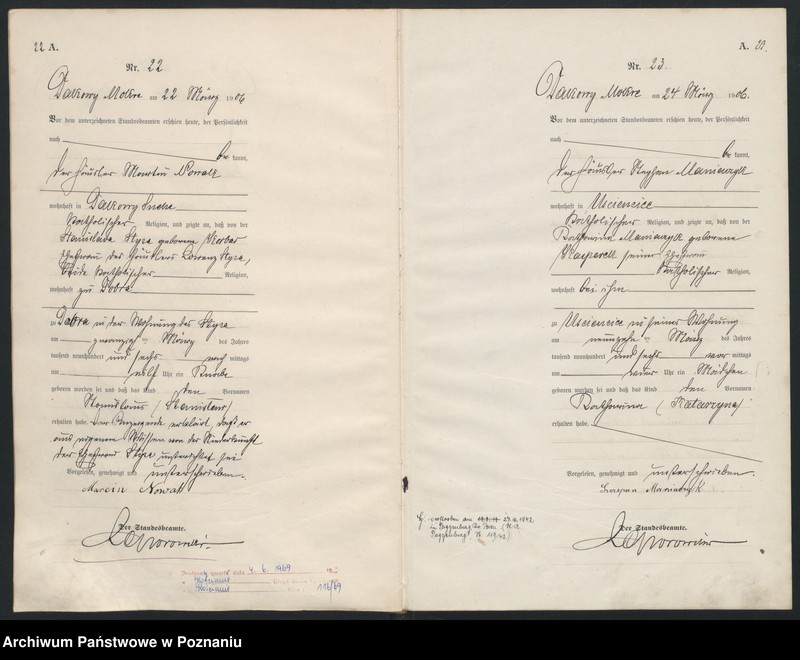 22 A.
Nr. 22
Dakowy Mokre am 22 März 1906
Vor dem unterzeichneten Standesbeamten erschien heute, der Persönlichkeit
nach
be kannt,
der Häusler Martin Nowak
wohnhaft in Dakowy Suche
katholischer Religion, und zeigte an, daß von der
Stanislawa Skyra geborene
Ehefrau des Häuslers Lorenz Skyra,
beide katholischer Religion,
wohnhaft zu Dobra
zu Dobra in der Wohnung des Skyra
am zwanzigsten März des Jahres
tausend neunhundert und sechs nach mittags
um elf Uhr ein Knabe
geboren worden sei und daß das Kind den Vornamen
Stanislaus (Stanisław)
erhalten habe. Der Anzeigende erklärt, daß er
aus eigenem Wissen von der Niederkunft
der Ehefrau Skyra unterrichtet sei
Vorgelesen, genehmigt und unterschrieben.
Marcin Nowak
Der Standesbeamte.
4. 6. 1969
116/69
A. 23.
Nr. 23
Dakowy Mokre am 24 März 1906.
Vor dem unterzeichneten Standesbeamten erschien heute, der Persönlichkeit
nach
be kannt,
der Häusler Stephan Maniaczyk
wohnhaft in Usciencice
katholischer Religion, und zeigte an, daß von der
Katharina Maniaczyk geborene
Kasperek seiner Ehefrau
katholischer Religion,
wohnhaft bei ihm
zu Usciencice in seiner Wohnung
am März des Jahres
tausend neunhundert und sechs vor mittags
um vier Uhr ein Mädchen
geboren worden sei und daß das Kind den Vornamen
Katharina (Katarzyna)
erhalten habe.
Vorgelesen, genehmigt und unterschrieben.
Maniaczyk
Der Standesbeamte.
verstorben am 1942
Archiwum Państwowe w Poznaniu